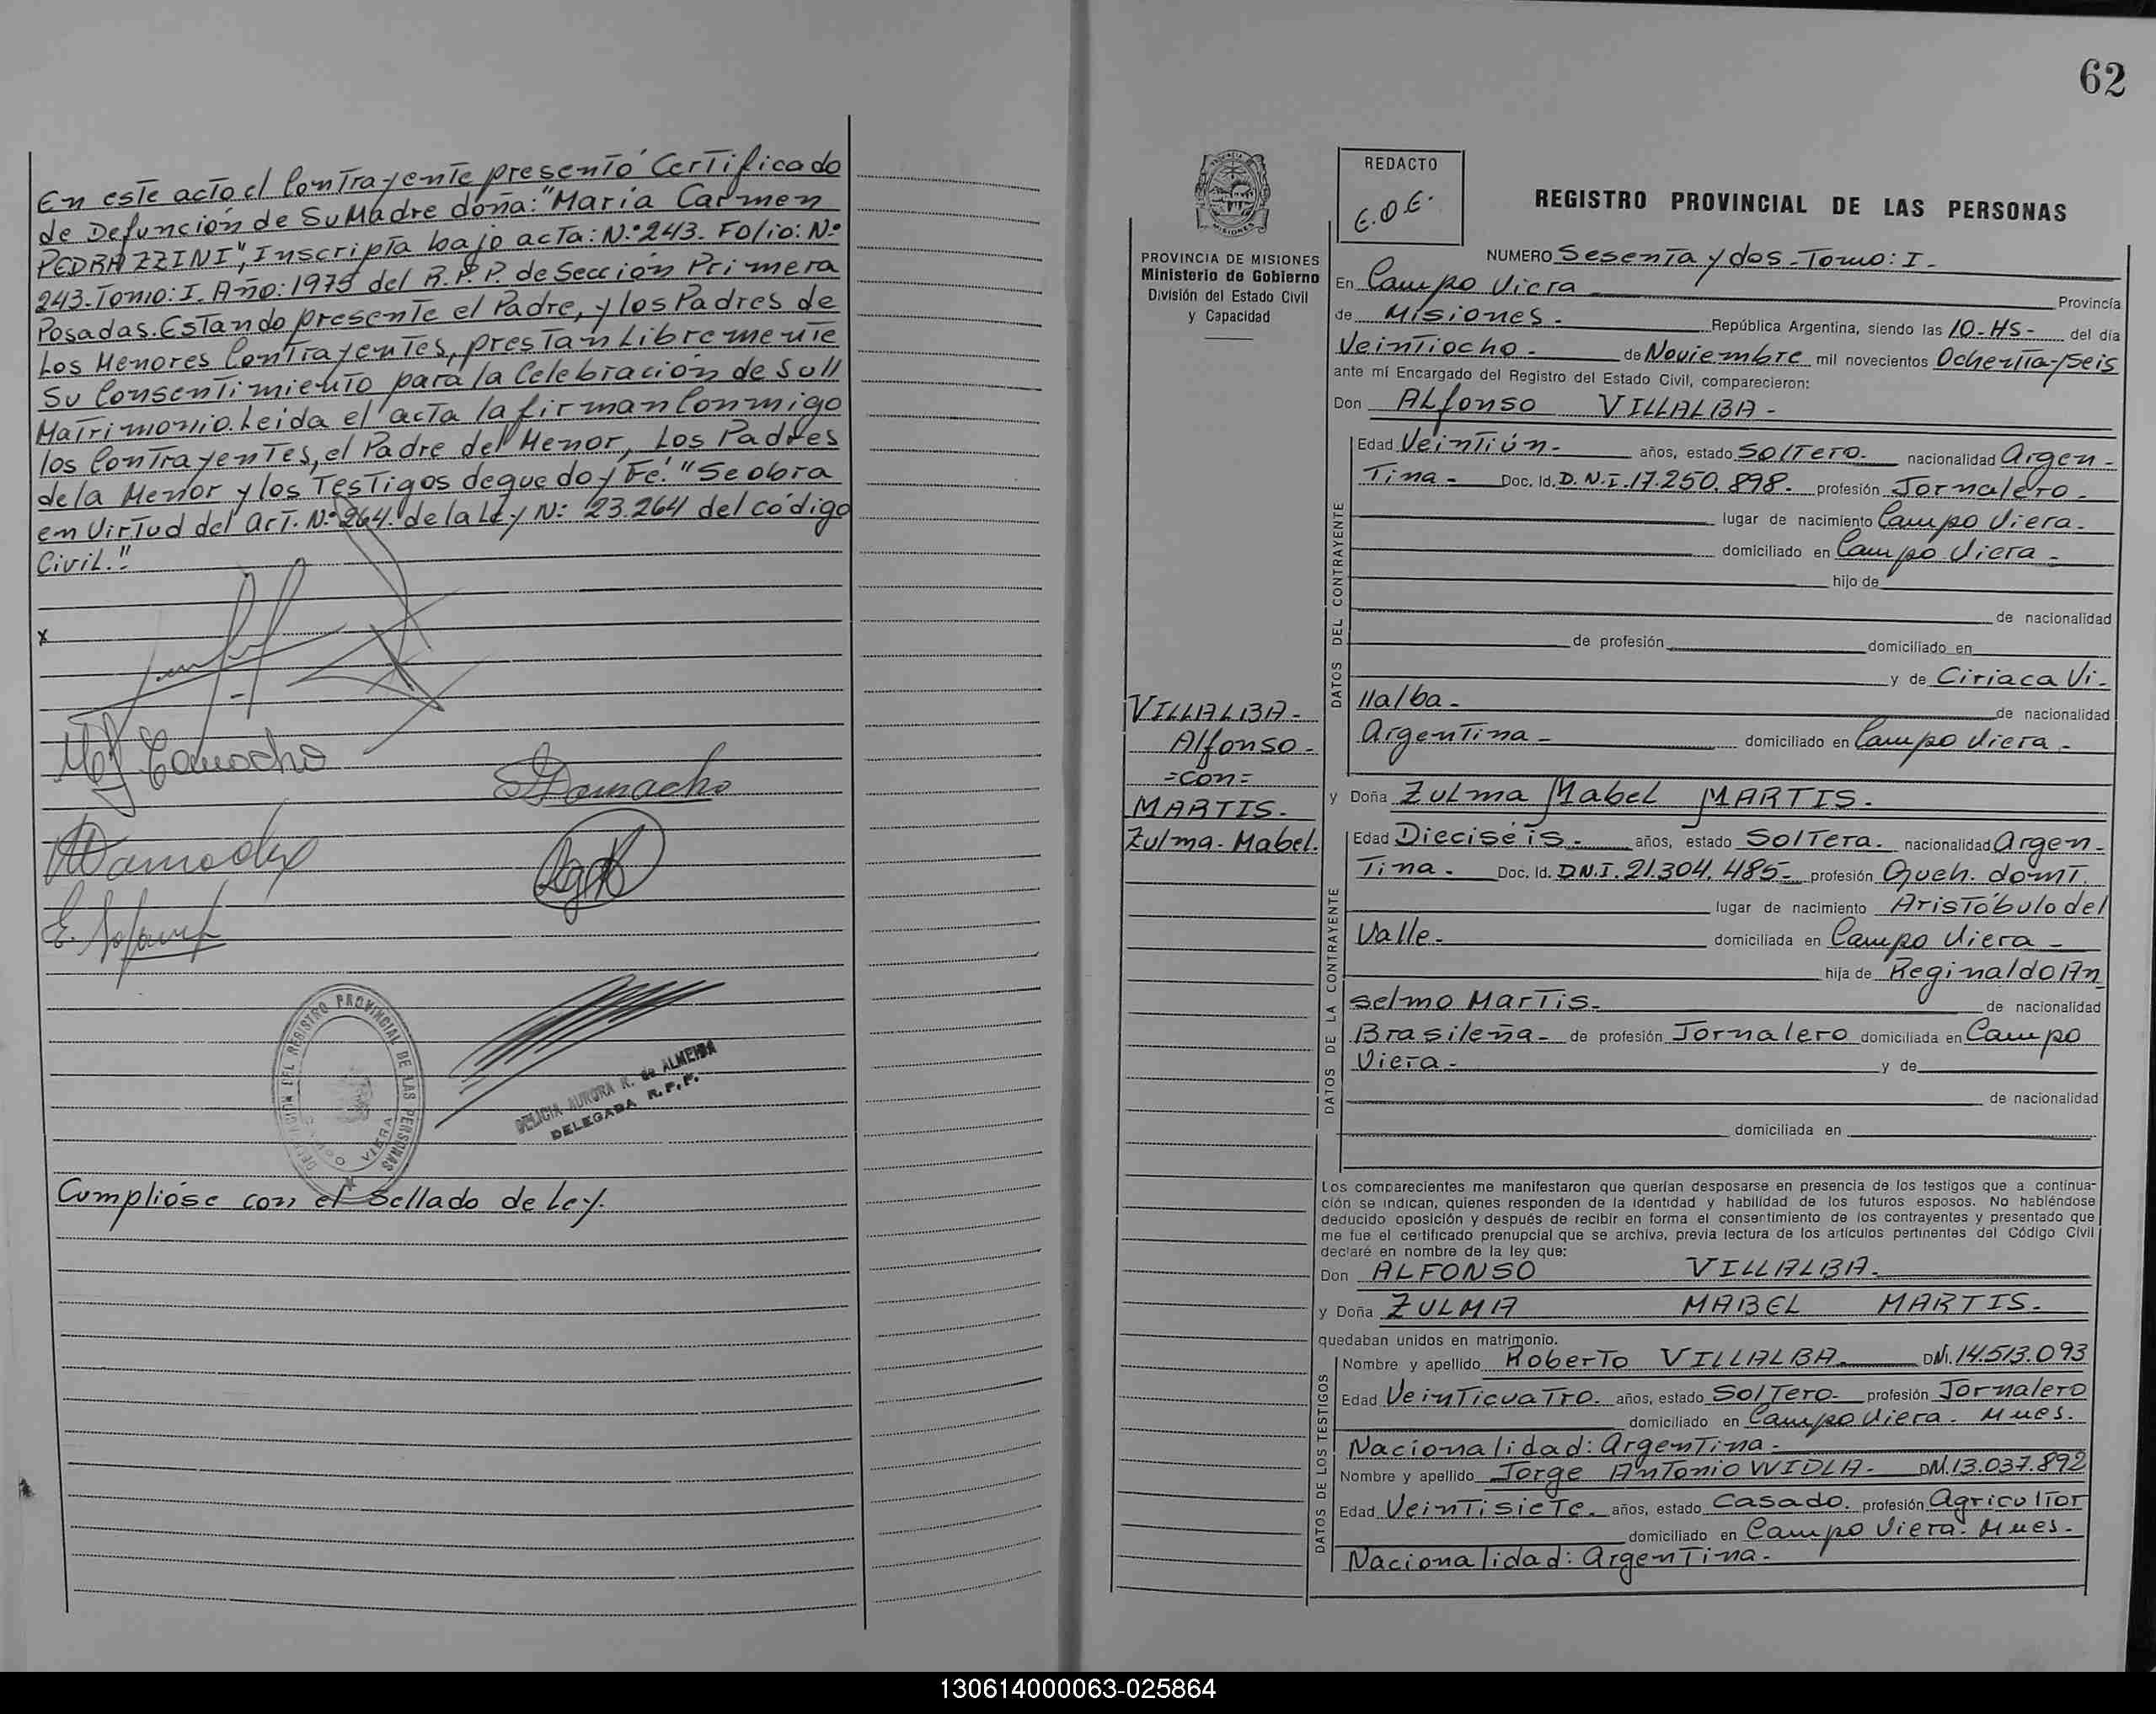 En este acto el Contrayente presentó Certificado
de Defunción de Su Madre doña: "María Carmen
PEDRAZZINI", Inscripta bajo acta: N:º 243. Folio: N:º
243. Tomo: I. Año: 1975 del R.P.P. de Sección Primera
Posadas. Estando presente el Padre, y los Padres de
Los Menores Contrayentes, prestan Libremente
Su Consentimiento para la Celebración de Su//
Matrimonio. Leida el acta la firman Conmigo
los Contrayentes, el Padre del Menor, Los Padres
de la Menor y los Testigos de que doy Fé." "Se obra
en Virtud del Art. N:º 264. de la Ley N: 23.264 del código
Civil."
x
DELICIA AURORA R. de ALMEIDA
DELEGADA R.P.P.
DEL REGISTRO PROVINCIAL DE LAS PERSONAS
CAMPO VIERA
Cumplióse con el Sellado de Ley.
62
REDACTO
E.O.E.
REGISTRO PROVINCIAL DE LAS PERSONAS
PROVINCIA DE MISIONES
Ministerio de Gobierno
División del Estado Civil
y Capacidad
NUMERO Sesenta y dos - Tomo: I -
En Campo Viera Provincia
de Misiones. República Argentina, siendo las 10-HS- del día
Veintiocho. de Noviembre mil novecientos Ochenta y seis
ante mí Encargado del Registro del Estado Civil, comparecieron:
Don ALfonso VILLALBA -
DATOS DEL CONTRAYENTE
Edad Veintiún - años, estado Soltero. nacionalidad Argen-
Tina - Doc. Id. D.N.I. 17.250.898. profesión Jornalero.
lugar de nacimiento Campo Viera.
domiciliado en Campo Viera -
hijo de
de nacionalidad
de profesión domiciliado en
y de Ciriaca Vi-
llalba. de nacionalidad
Argentina - domiciliado en Campo Viera -
VILLALBA -
Alfonso -
=con=
MARTIS.
Zulma - Mabel.
y Doña Zulma Mabel MARTIS.
DATOS DE LA CONTRAYENTE
Edad Dieciséis - años, estado Soltera. nacionalidad Argen-
Tina. Doc. Id. DN.I. 21.304.485- profesión Queh. domt.
lugar de nacimiento Aristóbulo del
Valle. domiciliada en Campo Viera -
hija de Reginaldo An
selmo Martis. de nacionalidad
Brasileña - de profesión Jornalero domiciliada en Campo
Viera. y de
de nacionalidad
domiciliada en
Los comparecientes me manifestaron que querían desposarse en presencia de los testigos que a continua-
ción se indican, quienes responden de la identidad y habilidad de los futuros esposos. No habiéndose
deducido oposición y después de recibir en forma el consentimiento de los contrayentes y presentado que
me fue el certificado prenupcial que se archiva, previa lectura de los artículos pertinentes del Código Civil
declaré en nombre de la ley que:
Don ALFONSO VILLALBA.
y Doña ZULMA MABEL MARTIS.
quedaban unidos en matrimonio.
DATOS DE LOS TESTIGOS
Nombre y apellido Roberto VILLALBA. DNI. 14.513.093
Edad Veinticuatro. años, estado Soltero. profesión Jornalero
domiciliado en Campo Viera. Mnes.
Nacionalidad: Argentina.
Nombre y apellido Jorge Antonio WIDLA. DNI. 13.037.892
Edad Veintisiete. años, estado Casado. profesión Agricultor
domiciliado en Campo Viera. Mnes.
Nacionalidad: Argentina.
130614000063-025864